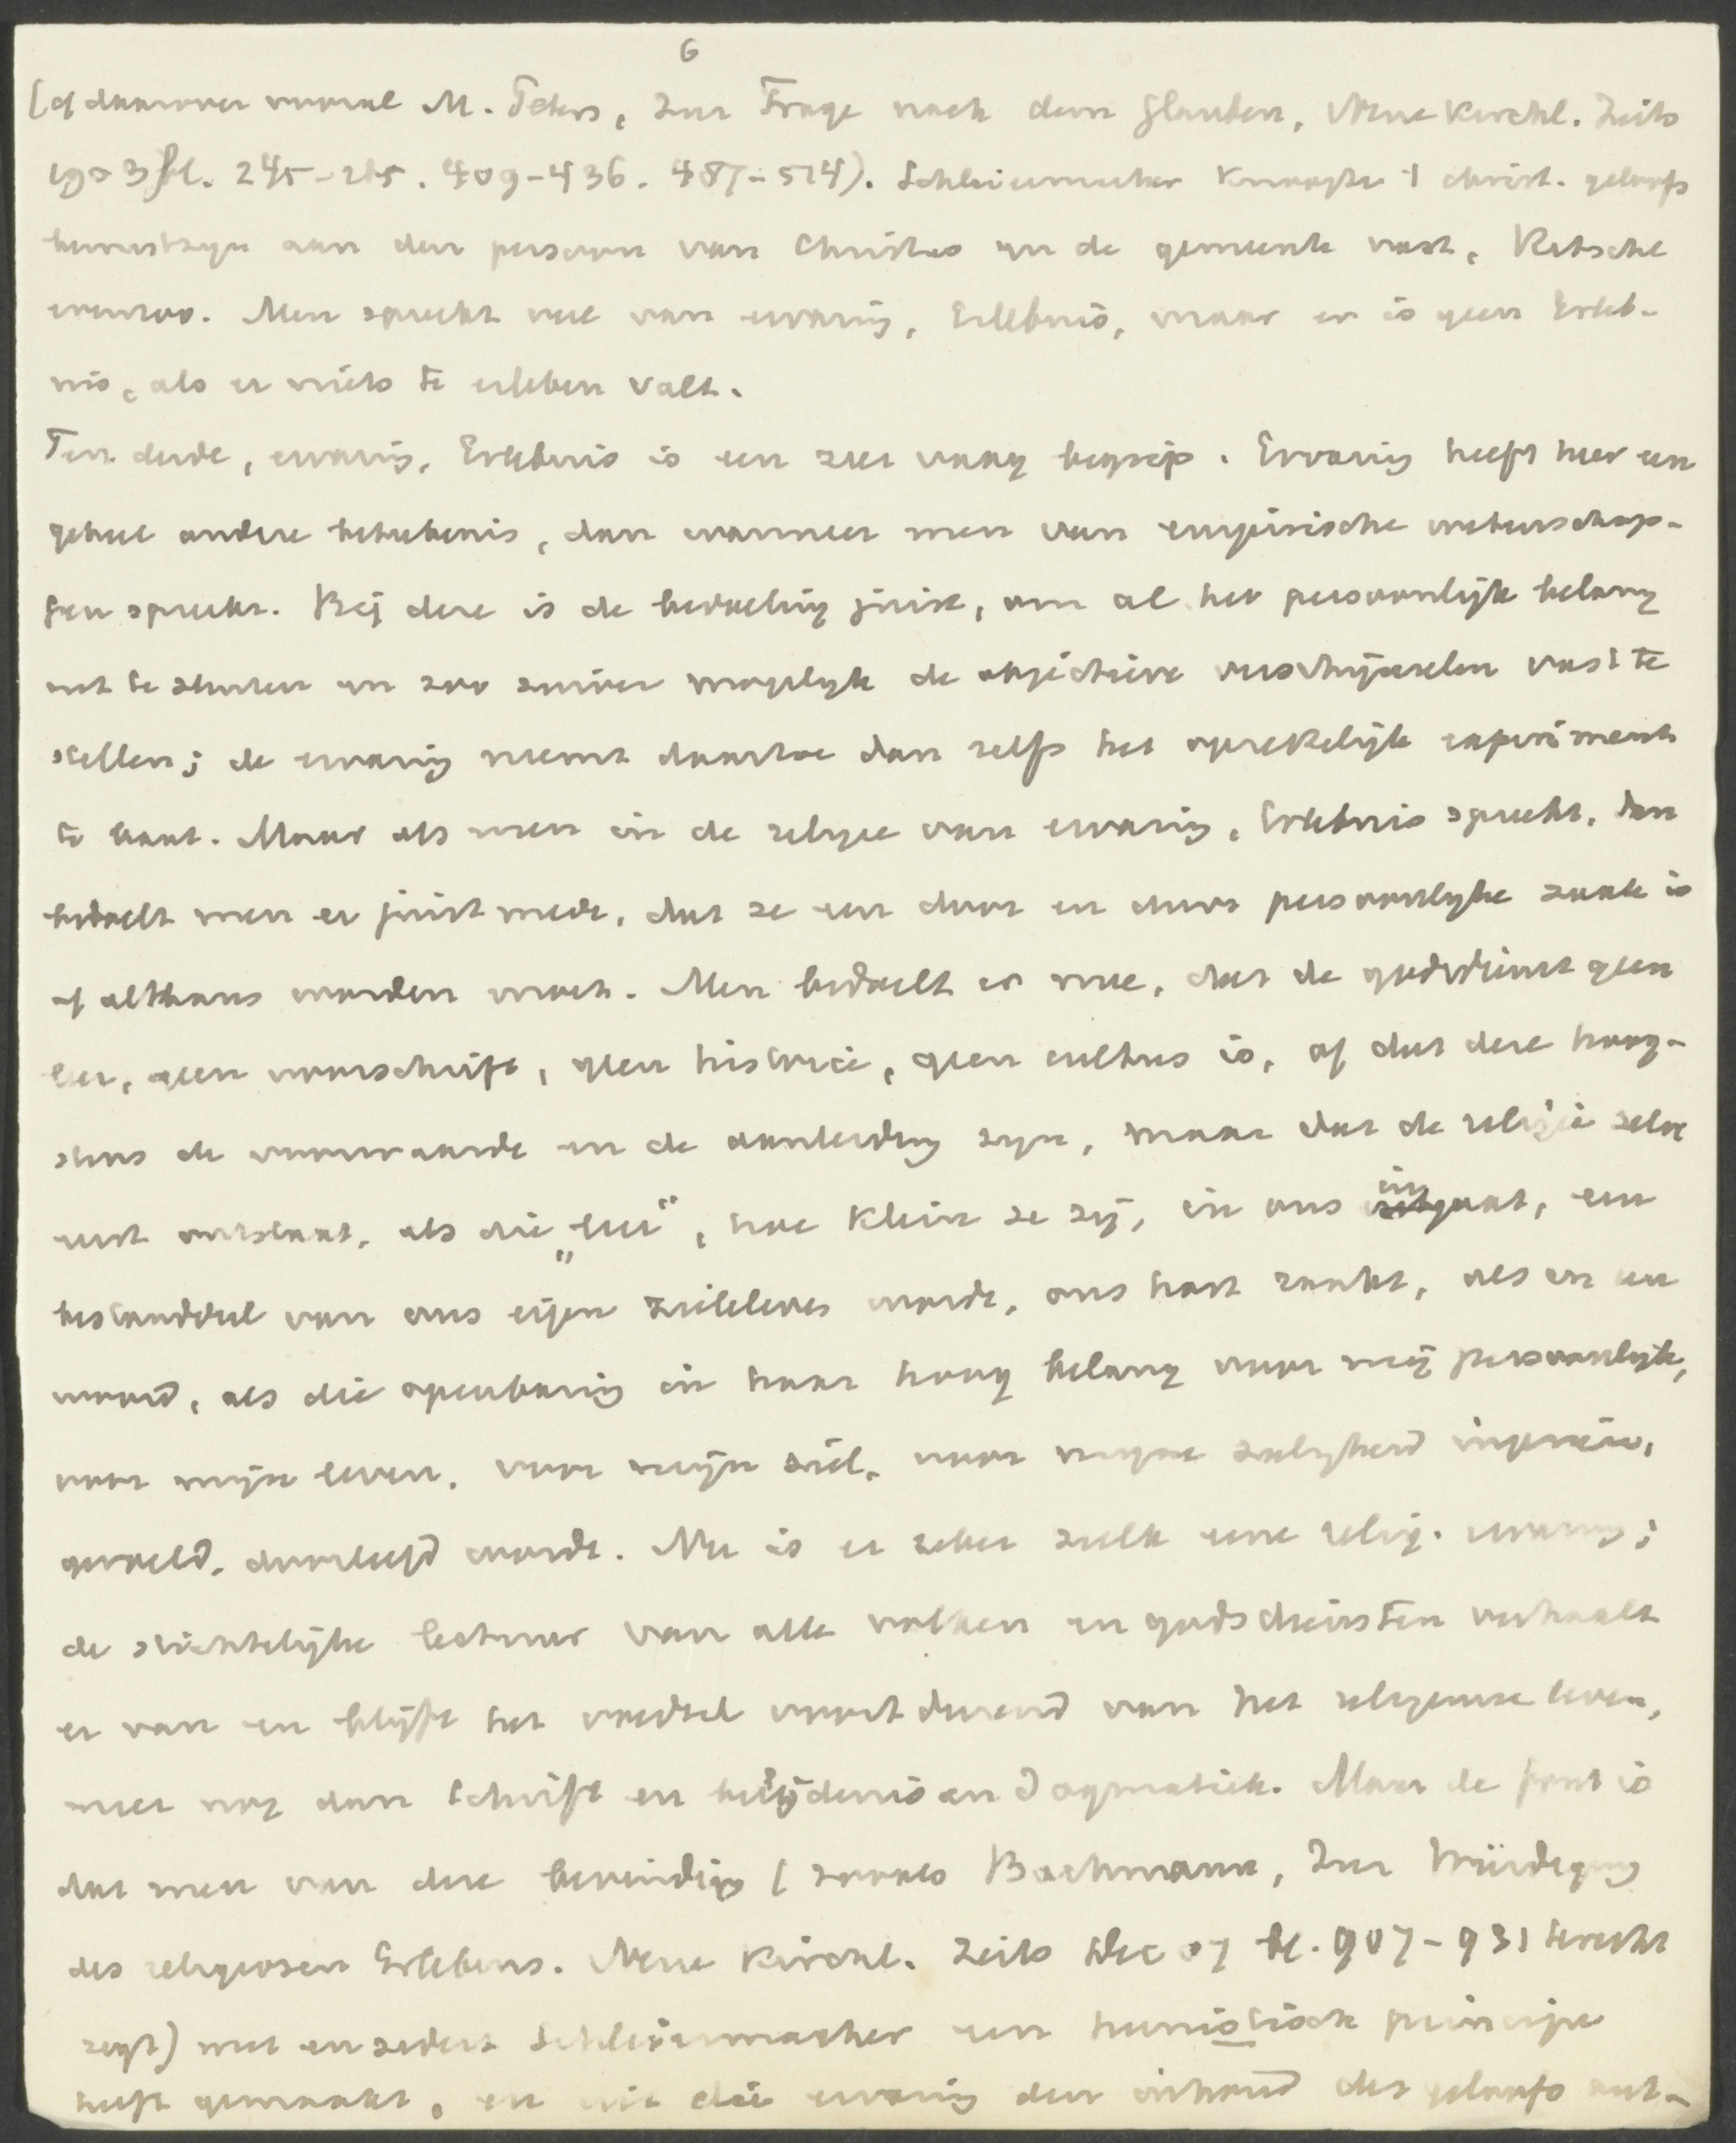 6
(cf daarover vooral M. Peters, Zur Frage nach dem Glauben, Neue Kirchl. Zeits
1903 bl. 245-265. 409-436. 487-514). Schleiermacher knoopte 't christ. geloofs
bewustzijn aan den persoon van Christus en de gemeente vast, Ritschl
evenzoo. Men spreekt veel van ervaring, Erlebnis, maar er is geen Erleb-
nis, als er niets te erleben valt.
Ten derde, ervaring, Erlebnis is een zeer vaag begrip. Ervaring heeft hier een
geheel andere beteekenis, dan wanneer men van empirische wetenschap-
pen spreekt. Bij deze is de bedoeling juist, om al het persoonlijk belang
uit te sluiten en zoo zuiver mogelijk de objectieve verschijnselen vast te
stellen; de ervaring neemt daartoe dan zelfs het opzettelijk experiment
te baat. Maar als men in de religie van ervaring, Erlebnis spreekt, dan
bedoelt men er juist mede, dat ze een door en door persoonlijke zaak is
of althans worden moet. Men bedoelt er mee, dat de godsdienst geen
leer, geen voorschrift, geen historie, geen cultus is, of dat deze hoog-
stens de voorwaarde en de aanleiding zijn, maar dat de religie zelve
eerst ontstaat, als die „leer“, hoe klein ze zij, in ons ingaat, een
bestanddeel van ons eigen zieleleven wordt, ons hart raakt, als er een
woord, als die openbaring in haar hoog belang voor mij persoonlijk,
voor mijn leven, voor mijn ziel, voor mijne zaligheid ingezien,
gevoeld, doorleefd wordt. Nu is er zeker zulk eene relig. ervaring;
de stichtelijke lectuur van alle volken en godsdiensten verhaalt
er van en blijft het voedsel voortdurend van het religieuse leven,
meer nog dan Schrift en belijdenis en Dogmatiek. Maar de fout is
dat men van deze bevinding (zooals Bachmann, Zur Würdigung
des religiosen Erlebens. Neue Kirchl. Zeits Dec 07 bl. 907-931 terecht
zegt) met en sedert Schleiermacher een heuristisch principe
heeft gemaakt, en uit die ervaring den inhoud des geloofs ont-